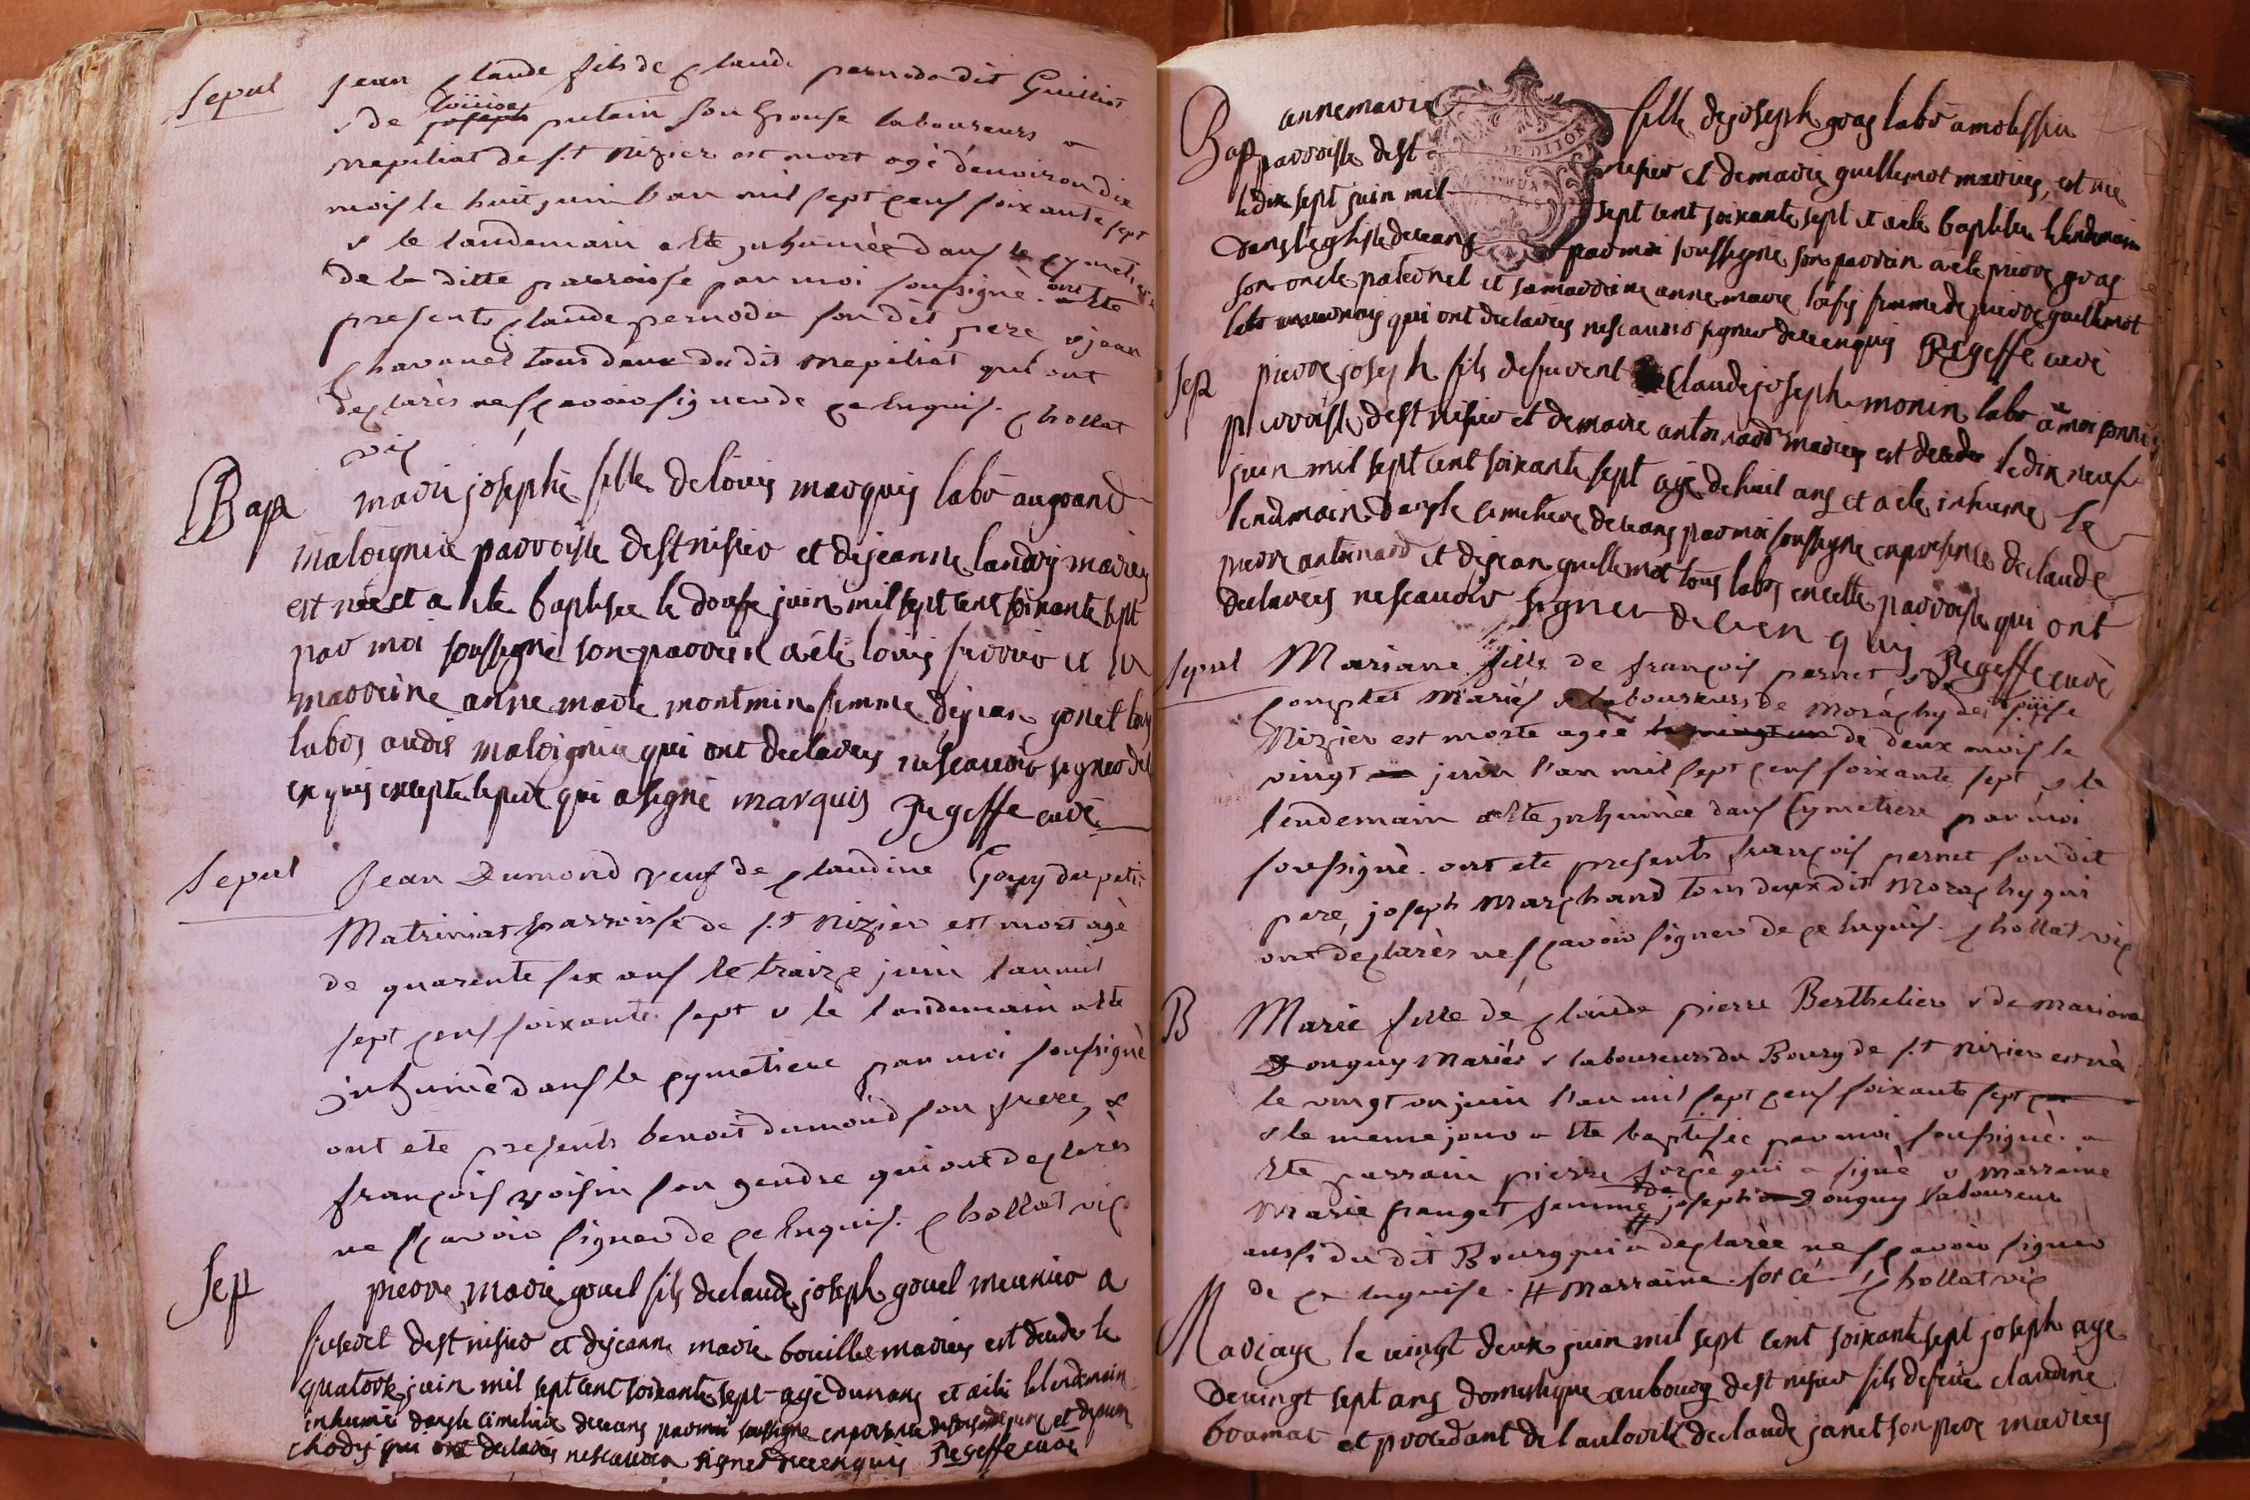 Sepul Jean Claude fils de Claude pernoda dit Guillot
& de Loüise putain son Epouse laboureurs a
Mepiliat de s.t Nizier est mort agé d'enviroin dix
mois le huit juin l'an mil sept cens soixante sept
& le landemain a été inhumée dans le cymetiere
de la ditte parroisse par moi sousigné. ont été
presents Claude pernoda son dit pere & jean
Chavanel tous deux du dit Mepiliat qui ont
declarés ne sçavoir signer de ce Enquis. Chollat
vic
Bap marie josephe fille de loüis marquis labr au grand
maloignia parroisse de st nisier et de jeanne landry mariez
est née et a été baptisée le douse juin mil sept cent soixante sept
par moi soussigné son parrein a été loüis ferrier et sa
marreine anne marie montmin femme de jean gonet tous
labrs audit maloignia qui ont declarez ne scauoir signer de
ce enquis excepté le pere qui a signé marquis Jegeffe curé
Sepul Jean Dumond veuf de Claudine Gouy du petit
Matrinias parroisse de s.t Nizier est mort agé
de quarente six ans le traize juin l'an mil
sept cens soixante sept & le landemain a été
inhumé dans le cymetiere par moi sousigné
ont eté presents benoit dumond son frere, &
françois voisin son gendre qui ont declarés
ne sçavoir signer de ce Enquis. Chollat vic
Sep pierre marie gouel fils de claude joseph gouel meunier a
de st nisier et de jeanne marie bouillet mariez est decedé le
quatorse juin mil sept cent soixante sept agé d'un ans et a été le lendemain
inhumé dans le cimetiere de ceans par moi soussigné en presence de et de
qui ont declarés ne scauoir signer de ce enquis Jegeffe curé
Bap anne marie fille de joseph gras labr a molissiat
parroisse de st nisier et de marie guillemot mariez, est née
le dix sept juin mil sept cent soixante sept et a été baptisée le lendemain
dans l'eglise de ceans par moi soussigné son parrein a été pierre gras
son oncle paternel et sa marreine anne marie femme de pierre guillemot
labr qui ont declarez ne scauoir signer de ce enquis Jegeffe curé
Sep pierre joseph fils de fuent Claude joseph monin labr a
parroisse de st nisier et de marie antoinard mariez est decedé le dix neuf
juin mil sept cent soixante sept agé de huit ans et a été inhumé le
lendemain dans le cimetiere de ceans par moi soussigné en presence de claude
pierre antoinard et de jean guillemot tous labrs en cette parroisse qui ont
declarez ne scauoir signer de ce enquis Jegeffe curé
Sepul Mariane fille de françois pernet & de loüise
Mariés & laboureurs de Moraschy de s.t
Nizier est morte agée de deux mois le
vingt juin l'an mil sept cens soixante sept & le
lendemain a été inhumée dans cymetiere par moi
sousigné. ont été presents françois pernet son dit
pere, joseph Marchand tous deux dit Moraschy qui
ont declarés ne sçavoir signer de ce Enquis. Chollat vic
B Marie fille de Claude pierre Berthelier & de Mariane
Donguy Mariés & laboureurs du Bourg de s.t Nizier est née
le vingt un juin l'an mil sept cens soixante sept
& le meme jour a été baptisée par moi sousigné. a
Eté parrain pierre forcé qui a signé & marraine
Marie panget femme de joseph Donguy laboureur
aussi du dit Bourg qui a declarée ne sçavoir signer
de ce Enquise. # marraine. forcé Chollat vic
Mariage le vingt deux juin mil sept cent soixante sept joseph agé
de vingt sept ans domestique au bourg de st nisier fils de feüe claudine
boumat et procedant de l'autorité de claude janet son pere mariez